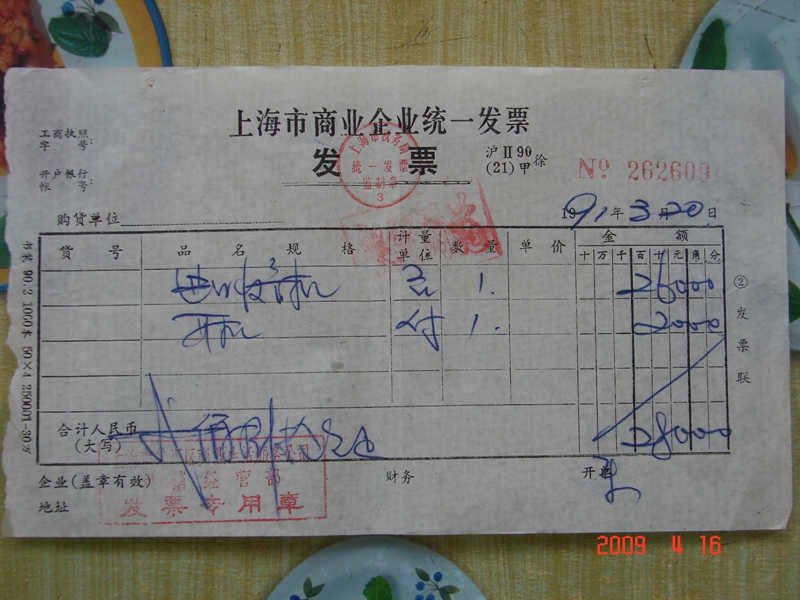 上海市商业企业统一发票
工商执照
字 号:
发 票
沪Ⅱ90
(21)甲 徐
上海市税务局
统一发票
监制章
3
№ 262609
开户银行
帐 号:
购货单位
1991年3月20日
货 号 品 名 规 格 计量单位 数 量 单 价 金 额
十万千百十元角分
1. 26000
开机 付 1. 2000
合计人民币
(大写)
28000
企业(盖章有效) 财务 开单
经营部
发票专用章
地址
② 发票联
书装 90.2 1000本 50×4 250001-30万
2009 4 16